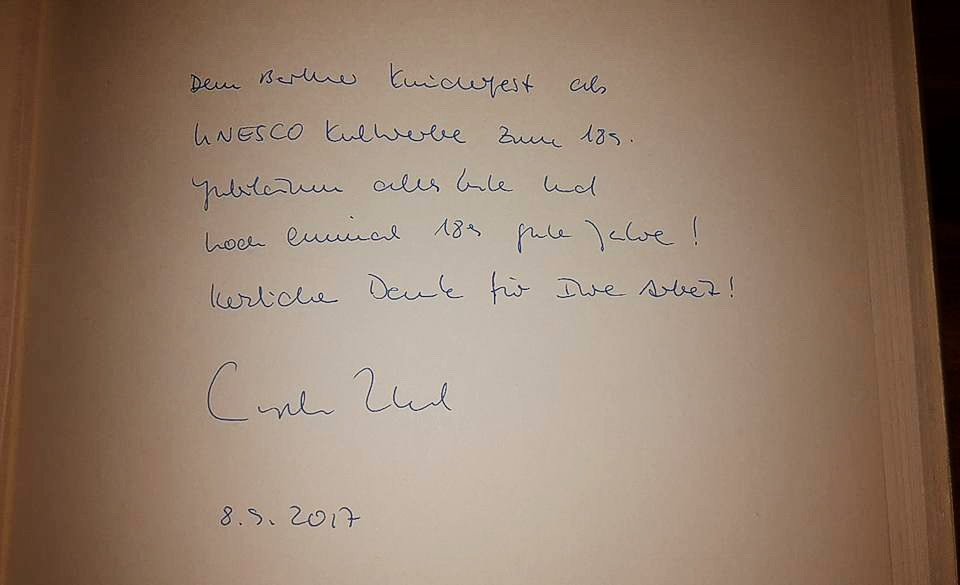 Dem Berliner Kinderfest als
UNESCO Kulturerbe zum 189.
Jubiläum alles Gute und
noch einmal 189 gute Jahre!
Herzlichen Dank für Ihre Arbeit!
8.9.2017